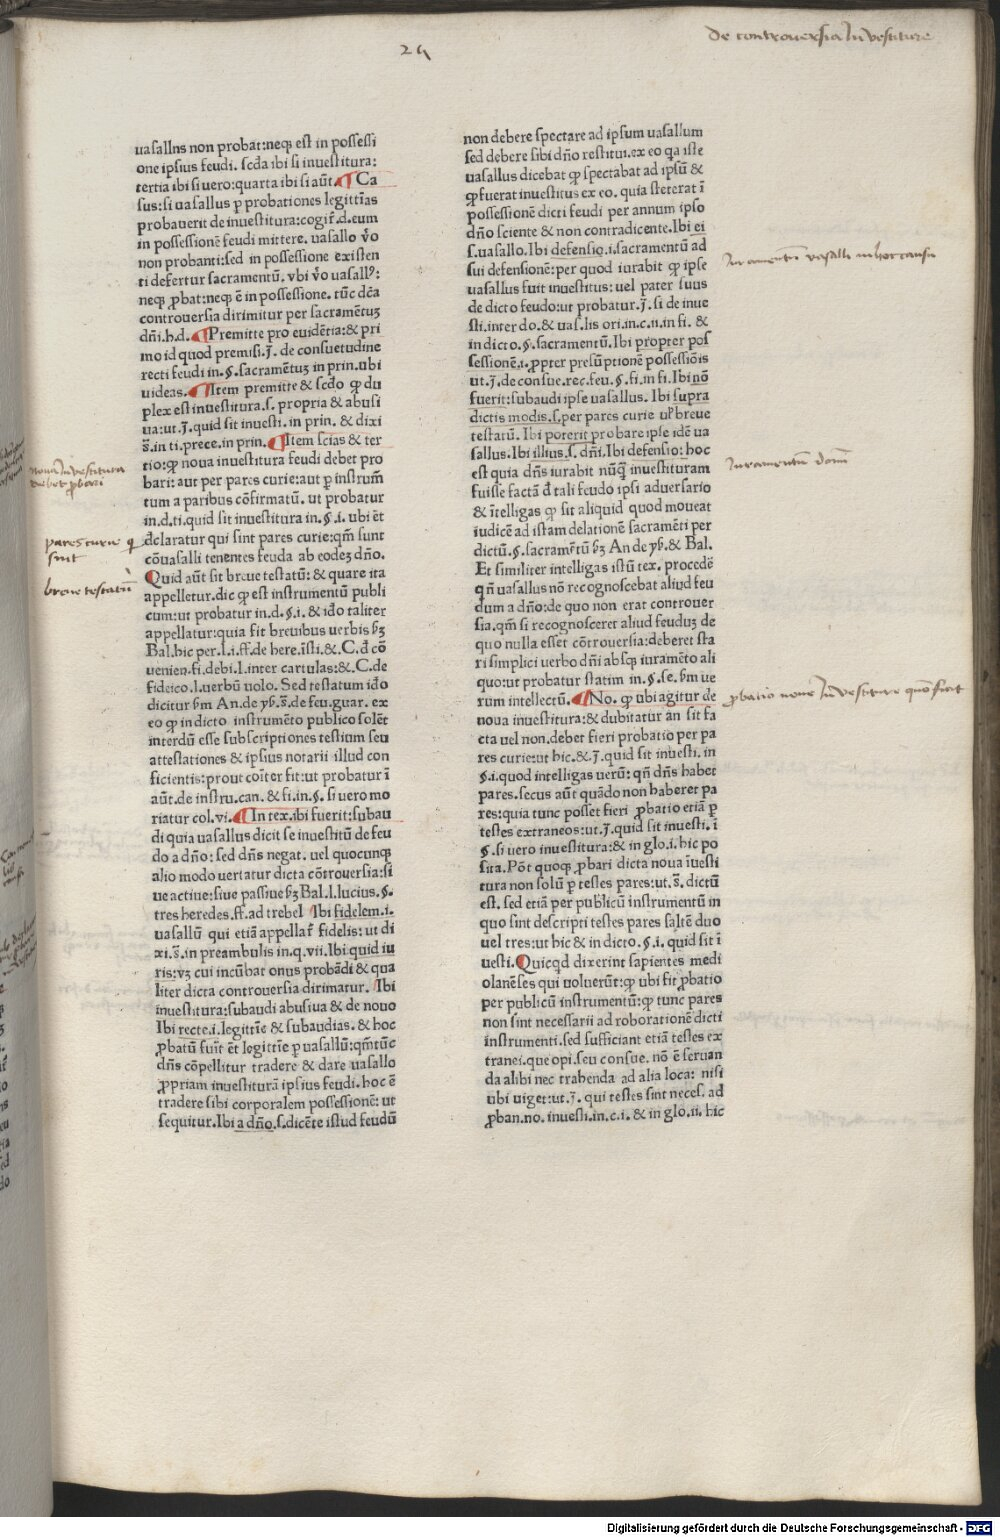 24
de controuersia Inuestiture
uasallns non probat:neqꝫ est in possessi
one ipsius feudi. scd̄a ibi si inuestitura:
tertia ibi si uero:quarta ibi si aūt. ¶ Ca
sus:si uasallus ꝑ probationes legittīas
probauerit de inuestitura:cogit̄.d.eum
in possessionē feudi mittere. uasallo v̄o
non probanti:sed in possessione existen
ti defertur sacramentū. vbi v̄o uasallꝰ:
neqꝫ ꝓbat:neqꝫ ē in possessione. tūc dc̄a
controuersia dirimitur per sacramētuꝫ
dn̄i.h.d. ¶ Premitte pro euidētia:& pri
mo id quod premisi.J. de consuetudine
recti feudi in.§.sacramētuꝫ in prin.ubi
uideas. ¶ Item premitte & scd̄o ꝙ du
plex est inuestitura.s. propria & abusi
ua:ut.J.quid sit inuesti. in prin. & dixi
s̄.in ti.prece.in prin. ¶ Item scias & ter
tio:ꝙ noua inuestitura feudi debet pro
bari: aut per pares curie:aut ꝑ instrum̄
tum a paribus cōfirmatū. ut probatur
in.d.ti.quid sit inuestitura in.§.i. ubi ēt
delaratur qui sint pares curie:qm̄ sunt
cōuasalli tenentes feuda ab eodeꝫ dn̄o.
Quid aūt sit breue testatū: & quare ita
appelletur.dic ꝙ est instrumentū publi
cum:ut probatur in.d.§.i. & id̄o taliter
appellatur:quia fit breuibus uerbis ẜꝫ
Bal.hic per.l.i.ff.de here.īsti.& C.d̄ cō
uenien.fi.debi.l.inter cartulas:& C.de
fideico.l.uerbū uolo. Sed testatum id̄o
dicitur ẜm An.de yẜ.s̄.de feu.guar. ex
eo ꝙ in dicto instrumēto publico solēt
interdū esse subscriptiones testium seu
attestationes & ipsius notarii illud con
ficientis:prout cōiter fit:ut probatur ī
aūt.de instru.can. & fi.in.§. si uero mo
riatur col.vi. ¶ In tex.ibi fuerit:subau
di quia uasallus dicit se inuestitū de feu
do a dn̄o: sed dn̄s negat. uel quocunqꝫ
alio modo vertatur dicta cōtrouersia:si
ue actiue:siue passiue ẜꝫ Bal.l.lucius.§.
tres heredes.ff.ad trebel Ibi fidelem.i.
uasallū qui etiā appellat̄ fidelis: ut di
xi.s̄.in preambulis in.q.vii.Ibi quid iu
ris:vꝫ cui incūbat onus probādi & qua
liter dicta controuersia dirimatur. Ibi
inuestitura:subaudi abusiua & de nouo
Ibi recte.i.legittīe & subaudias. & hoc
ꝓbatū fuīt ēt legittīe ꝑ uasallū:qm̄tūc
dn̄s cōpellitur tradere & dare uasallo
ꝓpriam inuestiturā ipsius feudi. hoc ē
tradere sibi corporalem possessionē: ut
sequitur.Ibi a dn̄o.s.dicēte istud feudū
non debere spectare ad ipsum uasallum
sed debere sibi dn̄o restitui.ex eo qa iste
uasallus dicebat ꝙ spectabat ad ipsū &
ꝙ fuerat inuestitus ex eo. quia steterat ī
possessionē dicti feudi per annum ipso
dn̄o sciente & non contradicente.Ibi ei
s.uasallo.Ibi defensio.i.sacramentū ad
sui defensionē:per quod iurabit ꝙ ipse
uasallus fuit inuestitus:uel pater suus
de dicto feudo:ut probatur.J.si de inue
sti.inter do.& uas.lis ori.in.c.ii.in fi. &
in dicto.§.sacramentū.Ibi propter pos
sessionē.i.ꝓpter presūptionē possessiōis
ut.J.de consue.rec.feu.§.fi.in fi.Ibi nō
fuerit:subaudi ipse uasallus. Ibi supra
dictis modis.s.per pares curie ul̓ breue
testatū. Ibi poterit probare ipse idē ua
sallus.Ibi illius.s. dn̄i.Ibi defensio: hoc
est quia dn̄s iurabit nūꝗ̄ inuestituram
fuisse factā d̄ tali feudo ipsi aduersario
& ītelligas ꝙ sit aliquid quod moueat
iudicē ad istam delationē sacramēti per
dictū.§.sacramētū ẜꝫ An de yẜ.& Bal.
Et similiter intelligas istū tex. procedē
qn̄ uasallus nō recognoscebat aliud feu
dum a dn̄o:de quo non erat controuer
sia.qm̄ si recognosceret aliud feuduꝫ de
quo nulla esset cōtrouersia:deberet sta
ri simplici uerbo dn̄i absqꝫ iuramēto ali
quo:ut probatur statim in.§.se. ẜm ue
rum intellectū. ¶ No. ꝙ ubi agitur de
noua inuestitura:& dubitatur an sit fa
cta uel non.debet fieri probatio per pa
res curie:ut hic.&.J.quid sit inuesti. in
§.i.quod intelligas uerū: qn̄ dn̄s habet
pares.secus aūt quādo non haberet pa
res:quia tunc posset fieri ꝓbatio etiā ꝑ
testes extraneos:ut.J.quid sit inuesti. ī
§.si uero inuestitura:& in glo.i. hic po
sita.Pōt quoqꝫ ꝓbari dicta noua īuesti
tura non solū ꝑ testes pares:ut.s̄. dictū
est. sed etiā per publicū instrumentū in
quo sint descripti testes pares saltē duo
uel tres:ut hic & in dicto.§.i. quid sit ī
uesti. Quicqd dixerint sapientes medi
olanēses qui uoluerūt:ꝙ ubi fit ꝓbatio
per publicū instrumentū:ꝙ tunc pares
non sint necessarii ad roborationē dicti
instrumenti.sed sufficiant etiā testes ex
tranei.que opi.seu consue. nō ē seruan
da alibi nec trahenda ad alia loca: nisi
ubi uiget:ut.J. qui testes sint neces. ad
ꝓban.no. inuesti.in.c.i. & in glo.ii. hic
noua Inuestitura
debet ꝓbari
pares curie qi
sint
breue testatū
Iuramentū vasalli in hoc casu
Iuramentū domī
ꝓbatio noue Inuestiture quō fiat
Digitalisierung gefördert durch die Deutsche Forschungsgemeinschaft - DFG